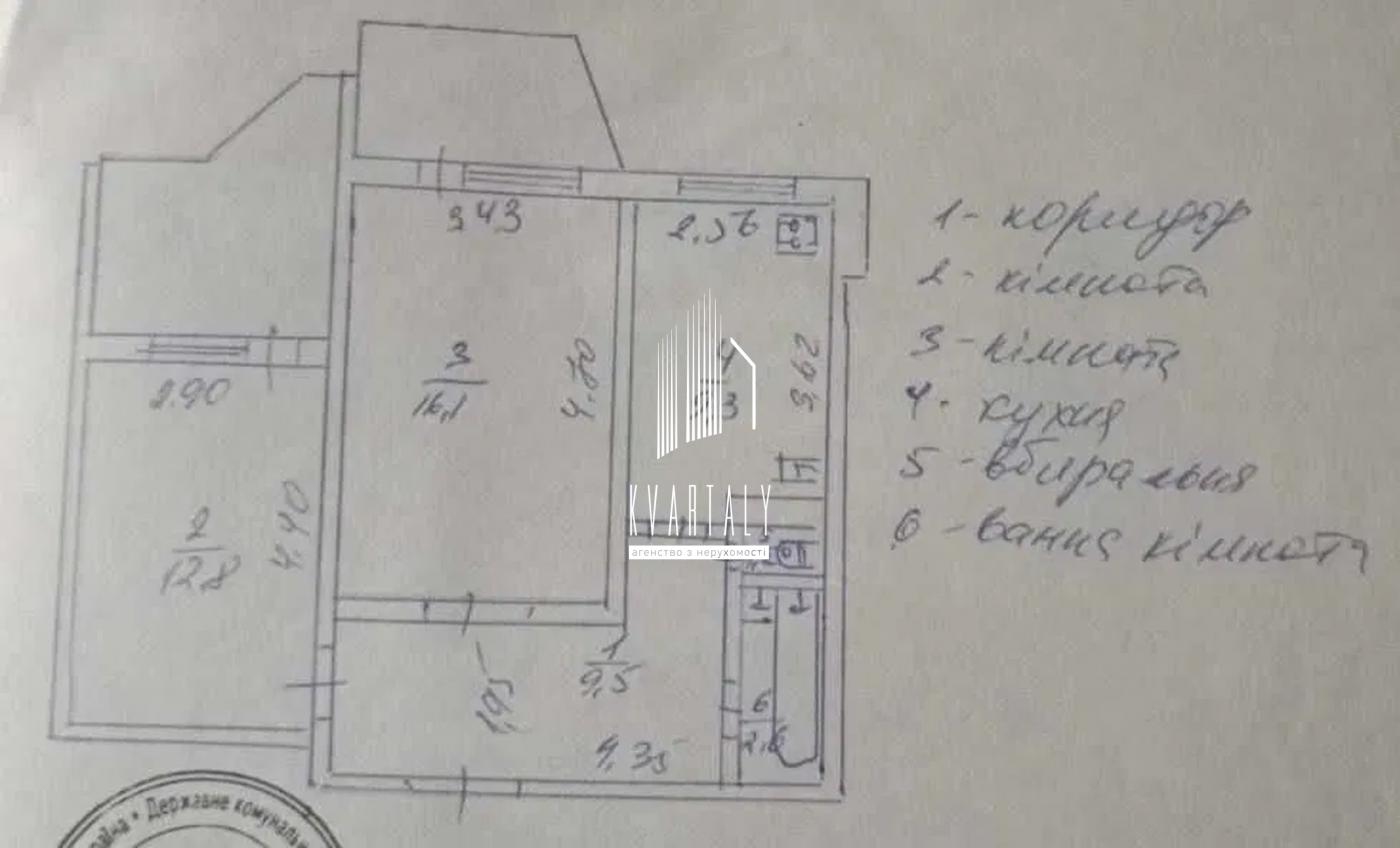 1- коридор
2- кімната
3-кімната
4- кухня
5-вбиральня
6-ванна кімната
3,43
2,56
3
16,1
4,70
4
9,3
3,62
2,90
2
12,8
4,40
KVARTALY
агенство з нерухомості
1
9,5
1,95
4,35
6
2,6
Державне комуналь